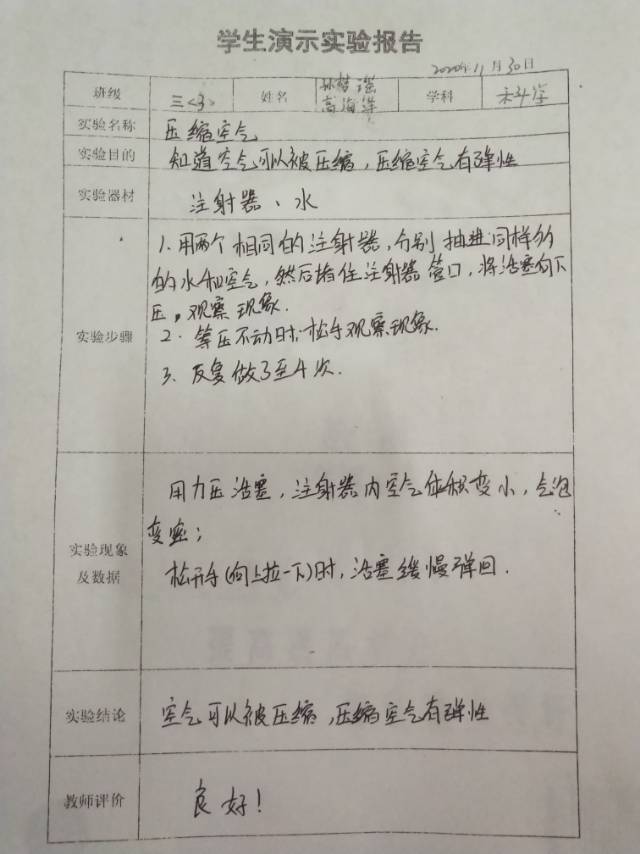 学生演示实验报告
2020年11月30日
班级 三<3> 姓名 孙梦瑶 学科 科学
高海洋
实验名称 压缩空气
实验目的 知道空气可以被压缩，压缩空气有弹性
实验器材 注射器、水
实验步骤
1. 用两个相同的注射器，分别抽进同样多
的水和空气，然后堵住注射器管口，将活塞向下
压。观察现象.
2. 等压不动时，松手观察现象.
3. 反复做3至4次.
实验现象
及数据
用力压活塞，注射器内空气体积变小，气泡
变密；
松开手(向上拉一下)时，活塞缓慢弹回.
实验结论 空气可以被压缩，压缩空气有弹性
教师评价 良好！